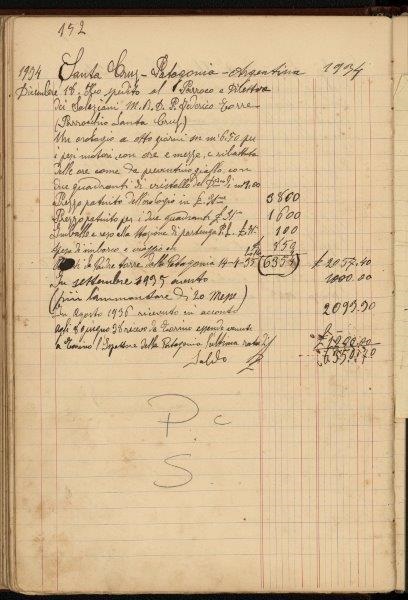 152
1934 Santa Cruz - Patagonia - Argentina 1934
Dicembre 18. Ho spedito al Parroco e Direttore
dei Salesiani M. R. D. P. Federico Torre
(Parrocchia Santa Cruz)
Un orologio a otto giorni m 6.50 per
i pesi motori, con ore e mezze, e ribattuta
delle ore come da preventivo giallo, con
due quadranti di cristallo di m 1.00
Prezzo pattuito dell'orologio in £ It 3800
Prezzo pattuito per i due quadranti £ It 1600
Imballo e reso alla Stazione di partenza £ It 100
Spese di imbarco e viaggio 859
Padre Torre dalla Patagonia 14-1-35 6354 £ 2057.40
In settembre 1935 avuto 1000.00
(più l'ammontare di 20 Messe)
In Agosto 1936 ricevuto in acconto 2093.30
Agli 8 giugno 38 ricevo da Torino essendo venuto
a Torino l'Ispettore della Patagonia l'ultima rata £ 1200.00
Saldo
P. c
S.